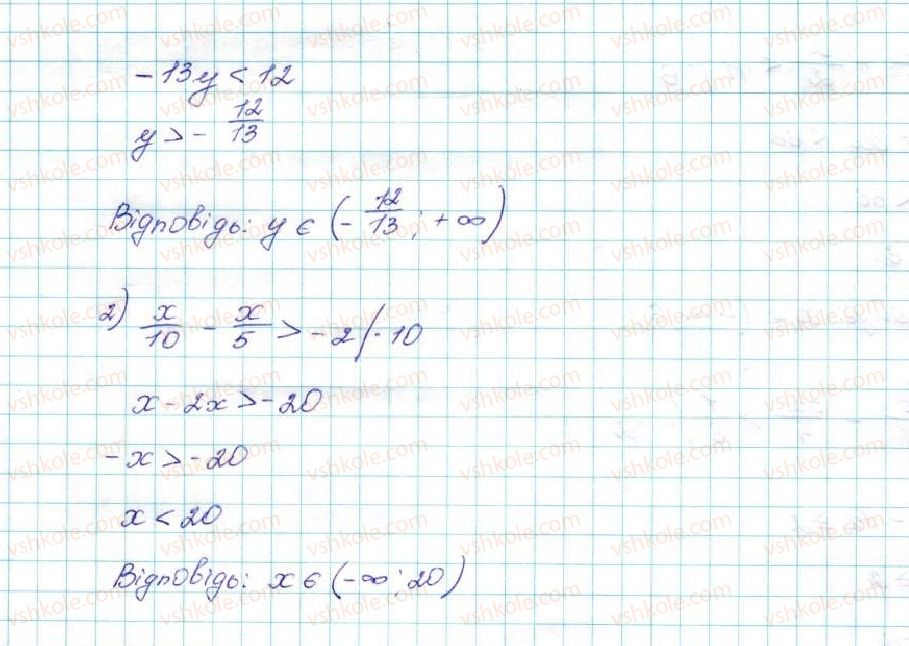 -13y < 12
y > - 12/13
Відповідь: y ∈ (- 12/13; +∞)
2) x/10 - x/5 > -2 /·10
x - 2x > -20
-x > -20
x < 20
Відповідь: x ∈ (-∞; 20)